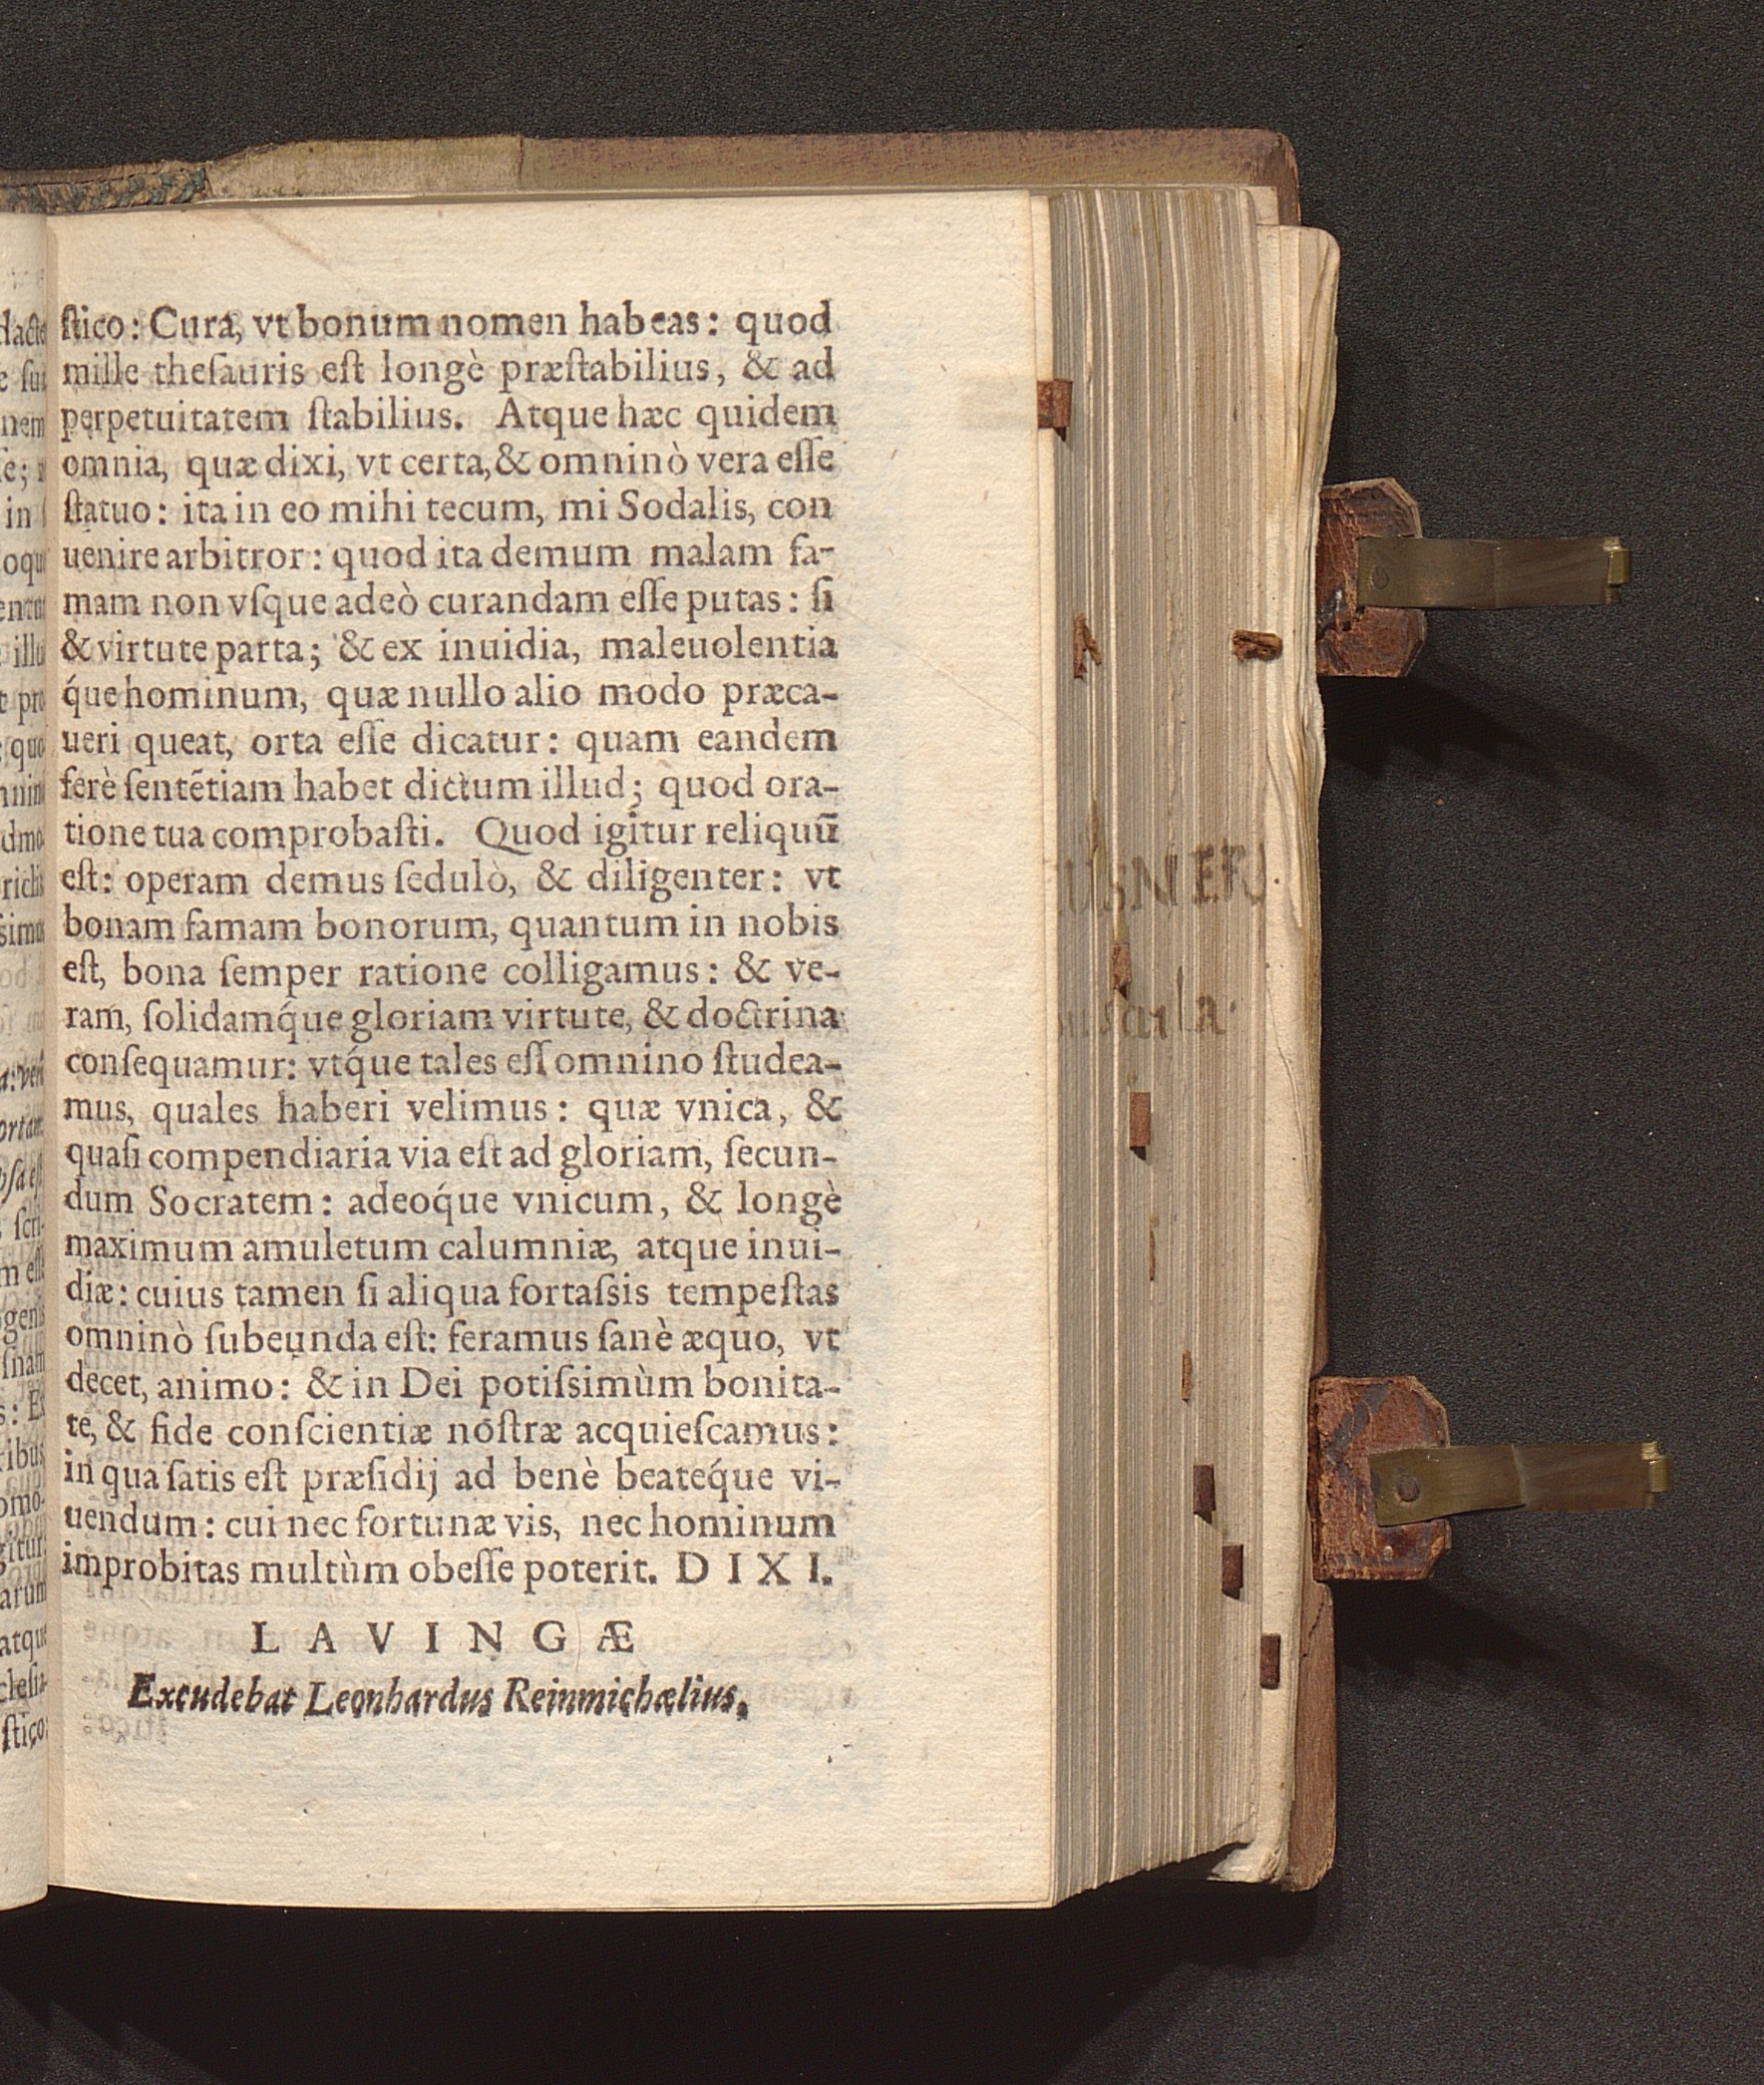 ſtico: Cura, vt bonum nomen habeas: quod
mille theſauris eſt longè præſtabilius, & ad
perpetuitatem ſtabilius. Atque hæc quidem
omnia, quæ dixi, vt certa, & omninò vera eſſe
ſtatuo: ita in eo mihi tecum, mi Sodalis, con
uenire arbitror: quod ita demum malam fa-
mam non vſque adeò curandam eſſe putas: ſi
& virtute parta; & ex inuidia, maleuolentia
q́ue hominum, quæ nullo alio modo præca-
ueri queat, orta eſſe dicatur: quam eandem
ferè ſentẽtiam habet dictum illud; quod ora-
tione tua comprobaſti. Quod igitur reliquũ
eſt: operam demus ſedulò, & diligenter: vt
bonam famam bonorum, quantum in nobis
eſt, bona ſemper ratione colligamus: & ve-
ram, ſolidamq́ue gloriam virtute, & doctrina
conſequamur: vtq́ue tales eſſ omnino ſtudea-
mus, quales haberi velimus: quæ vnica, &
quaſi compendiaria via eſt ad gloriam, ſecun-
dum Socratem: adeoq́ue vnicum, & longè
maximum amuletum calumniæ, atque inui-
diæ: cuius tamen ſi aliqua fortaſsis tempeſtas
omninò ſubeunda eſt: feramus ſanè æquo, vt
decet, animo: & in Dei potiſsimùm bonita-
te, & fide conſcientiæ noſtræ acquieſcamus:
in qua ſatis eſt præſidij ad benè beateq́ue vi-
uendum: cui nec fortunæ vis, nec hominum
improbitas multùm obeſſe poterit. D I X I.
L A V I N G Æ
Excudebat Leonhardus Reinmichælius.